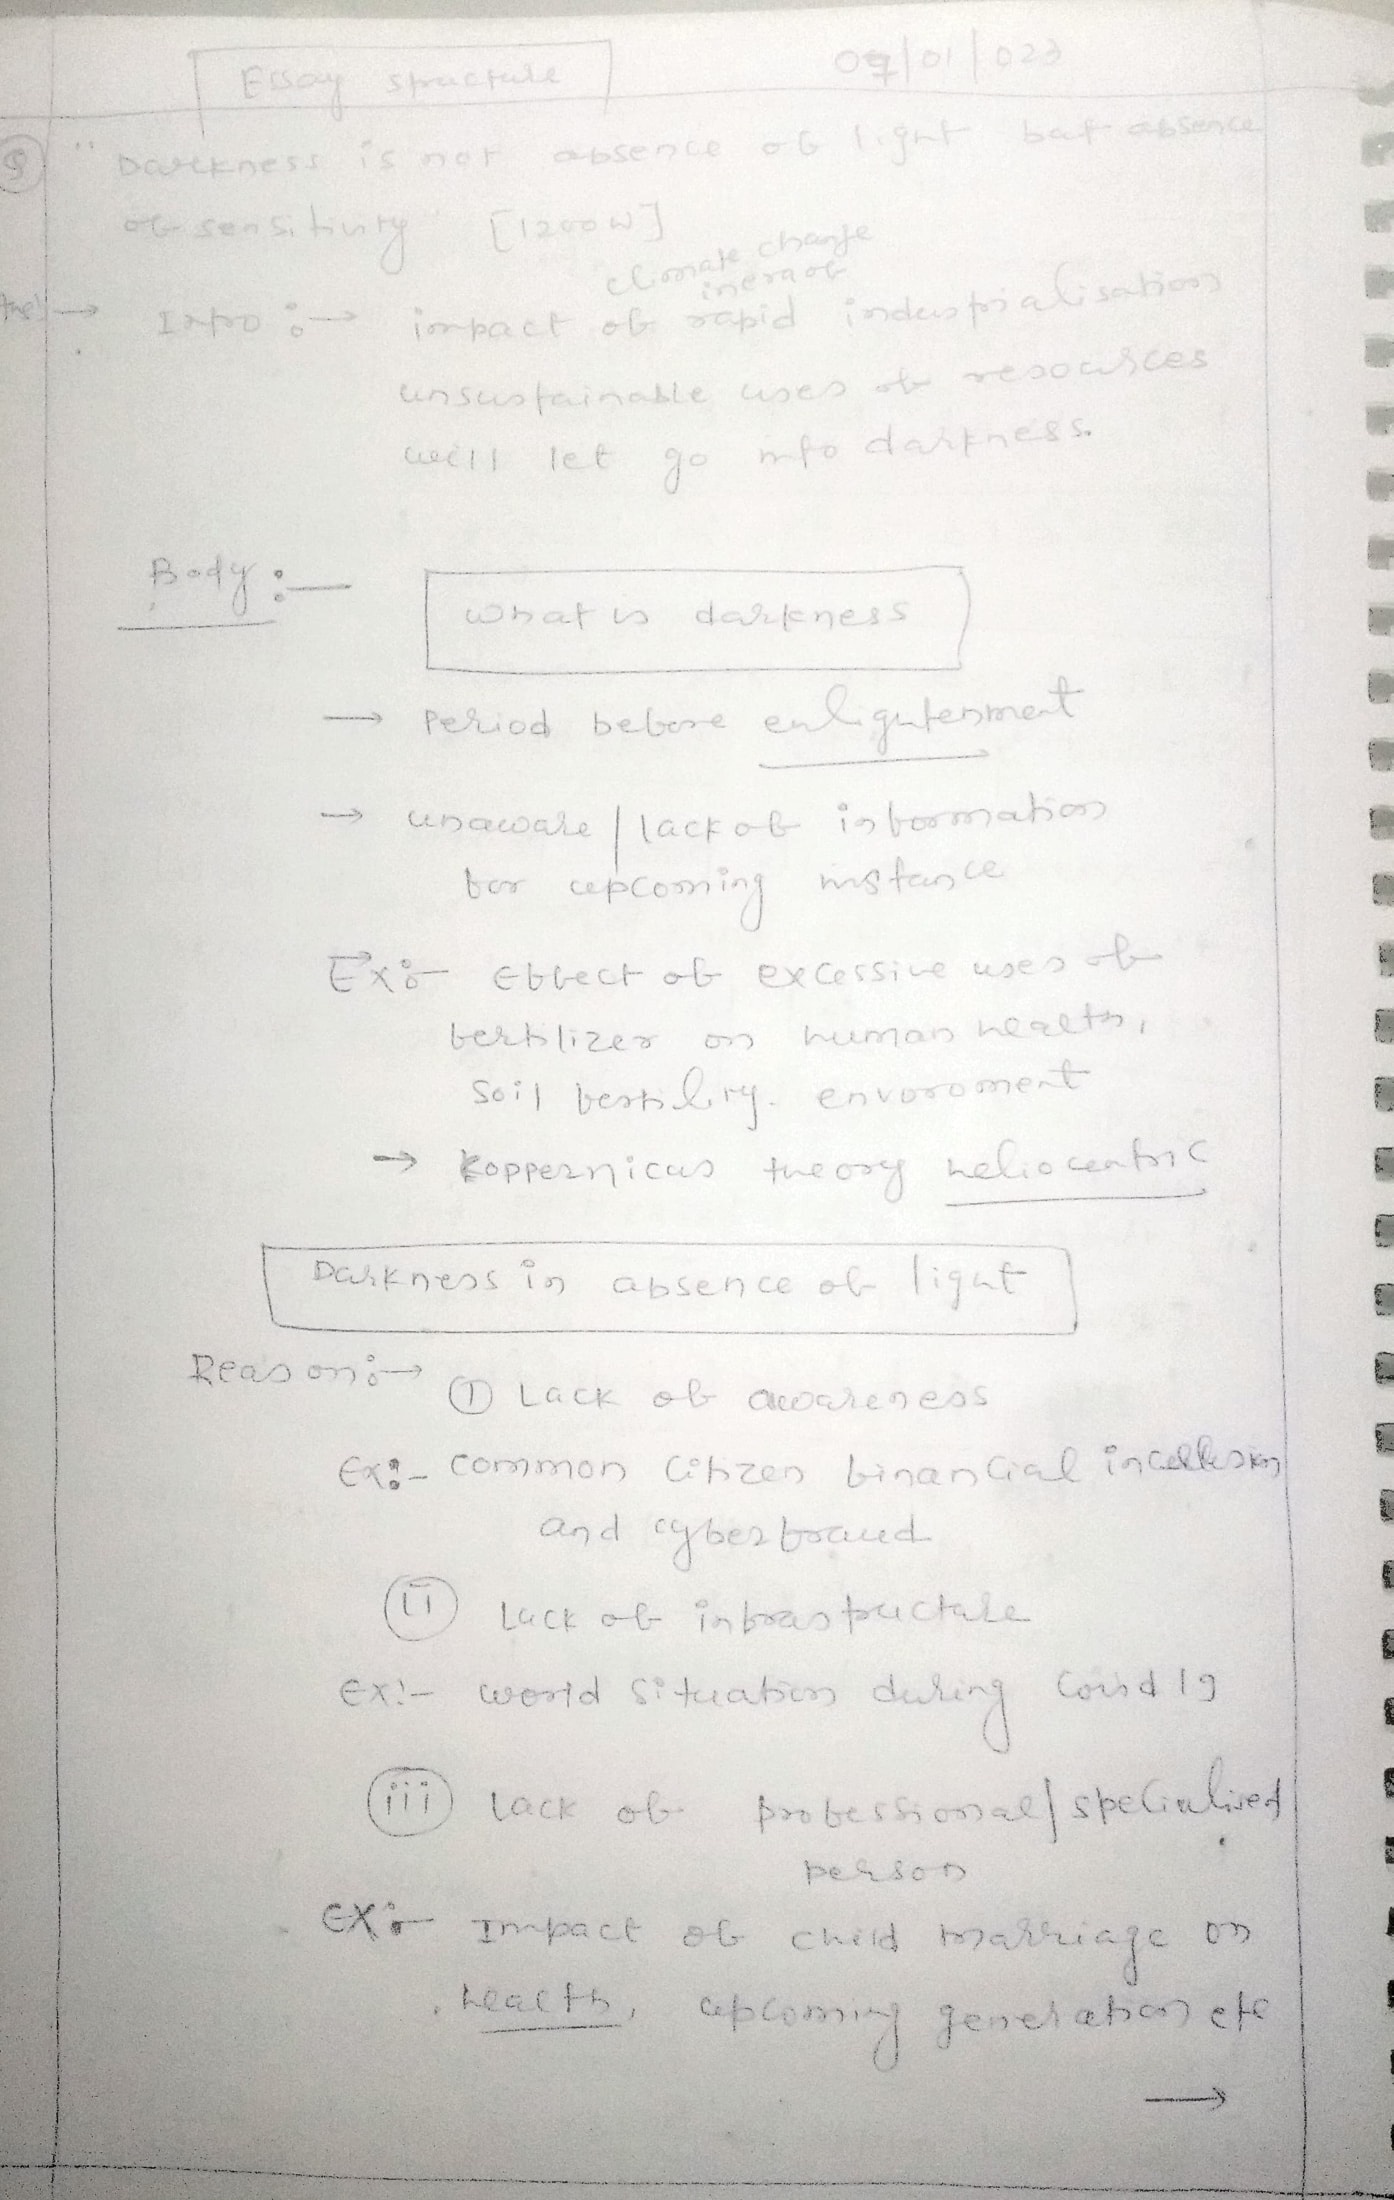 Essay structure
07/01/023
" Darkness is not absence of light but absence
of sensitivity" [1200W]
climate change
in era of
Ans:→ Intro :→ impact of rapid industrialisation
unsustainable uses of resources
will let go into darkness.
Body :—
What is darkness
→ Period before enlightenment
→ unaware / lack of information
for upcoming instance
Ex:- Effect of excessive uses of
fertilizer on human health,
soil fertility. envoroment
→ Koppernicus theory heliocentric
Darkness in absence of light
Reason:→ (I) Lack of awareness
Ex:- common citizen financial
and cyberfraud
(ii) Lack of infrastructure
Ex:- world situation during Covid 19
(iii) Lack of professional / specialised
person
Ex:- Impact of child marriage on
health, upcoming generation etc
→